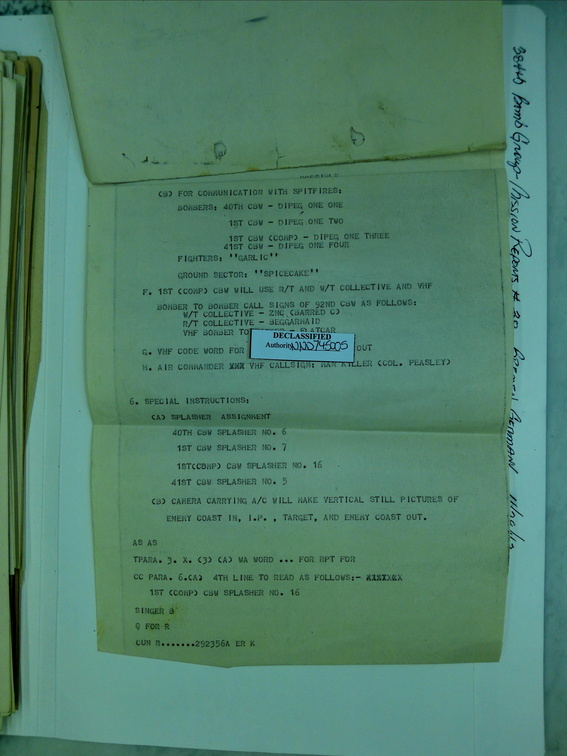 (B) FOR COMMUNICATION WITH SPITFIRES:
BOMBERS: 40TH CBW - DIPEG ONE ONE
1ST CBW - DIPEG ONE TWO
1ST CBW (COMP) - DIPEG ONE THREE
41ST CBW - DIPEG ONE FOUR
FIGHTERS: ''GARLIC''
GROUND SECTOR: ''SPICECAKE''
F. 1ST (COMP) CBW WILL USE R/T AND W/T COLLECTIVE AND VHF
BOMBER TO BOMBER CALL SIGNS OF 92ND CBW AS FOLLOWS:
W/T COLLECTIVE - ZNC (BARRED C)
R/T COLLECTIVE - BEGGARMAID
VHF BOMBER TO
DECLASSIFIED
Authority NND745005
G. VHF CODE WORD FOR OUT
H. AIR COMMANDER XXX VHF CALLSIGN: KILLER (COL. PEASLEY)
6. SPECIAL INSTRUCTIONS:
(A) SPLASHER ASSIGNMENT
40TH CBW SPLASHER NO. 6
1ST CBW SPLASHER NO. 7
1ST(COMP) CBW SPLASHER NO. 16
41ST CBW SPLASHER NO. 5
(B) CAMERA CARRYING A/C WILL MAKE VERTICAL STILL PICTURES OF
ENEMY COAST IN, I.P. , TARGET, AND ENEMY COAST OUT.
AS AS
TPARA. 3. X. (3) (A) WA WORD ... FOR RPT FOR
CC PARA. 6.(A) 4TH LINE TO READ AS FOLLOWS:-
1ST (COMP) CBW SPLASHER NO. 16
BINGER B
Q FOR R
CUM R.......292356A ER K
384th Bomb Group - Mission Reports # 20 Germany